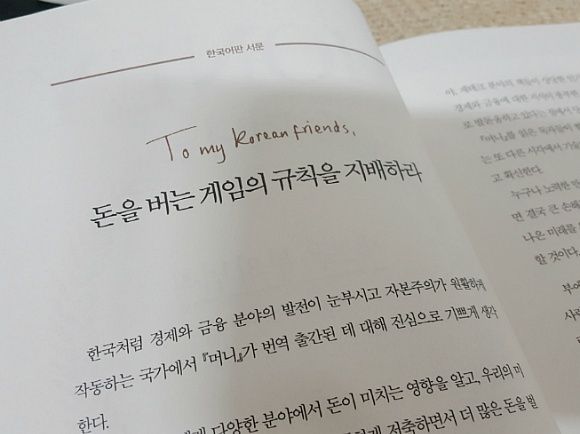 한국어판 서문
To my Korean friends,
돈을 버는 게임의 규칙을 지배하라
한국처럼 경제와 금융 분야의 발전이 눈부시고 자본주의가 원활하게
작동하는 국가에서 『머니』가 번역 출간된 데 대해 진심으로 기쁘게 생각
한다.
다양한 분야에서 돈이 미치는 영향을 알고, 우리의 미
저축하면서 더 많은 돈을 벌
야. 재테크 분야의
경제와 금융에 대한 지식이
『머니』를 읽은 독자들이
는 또 다른 시각에서
고 확신한다.
누구나 노력한 만
면 결국 큰 손해
나은 미래를
할 것이다.
부에
사람